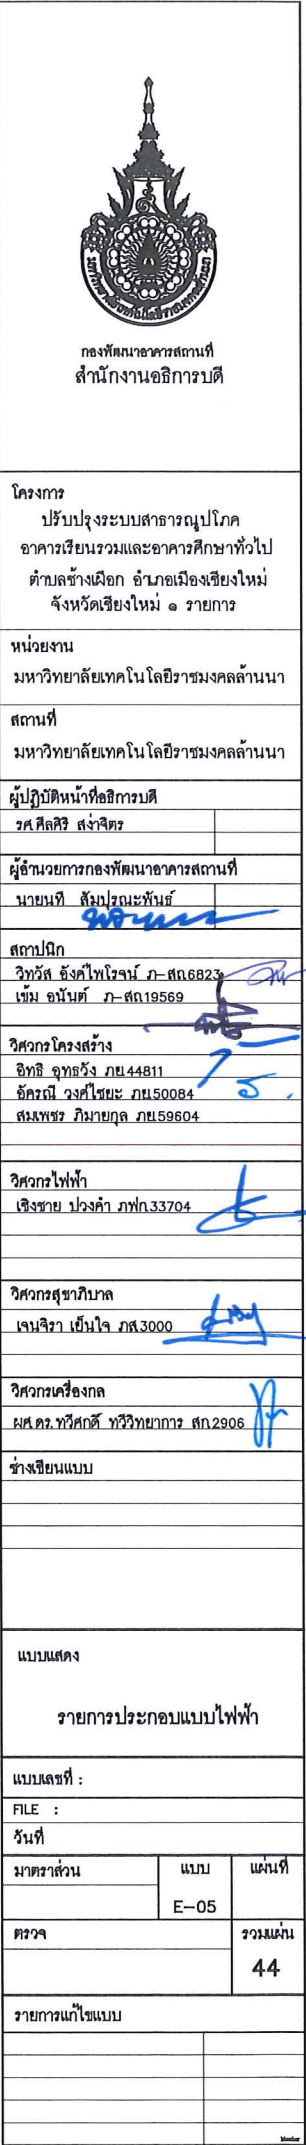 มหาวิทยาลัยเทคโนโลยีราชมงคลล้านนา
กองพัฒนาอาคารสถานที่
สำนักงานอธิการบดี
โครงการ
ปรับปรุงระบบสาธารณูปโภค
อาคารเรียนรวมและอาคารศึกษาทั่วไป
ตำบลช้างเผือก อำเภอเมืองเชียงใหม่
จังหวัดเชียงใหม่ ๑ รายการ
หน่วยงาน
มหาวิทยาลัยเทคโนโลยีราชมงคลล้านนา
สถานที่
มหาวิทยาลัยเทคโนโลยีราชมงคลล้านนา
ผู้ปฏิบัติหน้าที่อธิการบดี
รศ.ศีลศิริ สง่าจิตร
ผู้อำนวยการกองพัฒนาอาคารสถานที่
นายนที สัมปุรณะพันธ์
สถาปนิก
วิทวัส อังค์ไพโรจน์ ภ-สถ.6823
เข้ม อนันต์ ภ-สถ.19569
วิศวกรโครงสร้าง
อิทธิ อุทธวัง ภย.44811
อัครณี วงศ์ไชยะ ภย.50084
สมเพชร ภิมายกุล ภย.59604
วิศวกรไฟฟ้า
เชิงชาย ปวงคำ ภฟก.33704
วิศวกรสุขาภิบาล
เจนจิรา เย็นใจ ภส.3000
วิศวกรเครื่องกล
ผศ.ดร.ทวีศกดิ์ ทวีวิทยาการ สก.2906
ช่างเขียนแบบ
แบบแสดง
รายการประกอบแบบไฟฟ้า
แบบเลขที่ :
FILE :
วันที่
มาตราส่วน แบบ แผ่นที่
E-05
ตรวจ รวมแผ่น
44
รายการแก้ไขแบบ